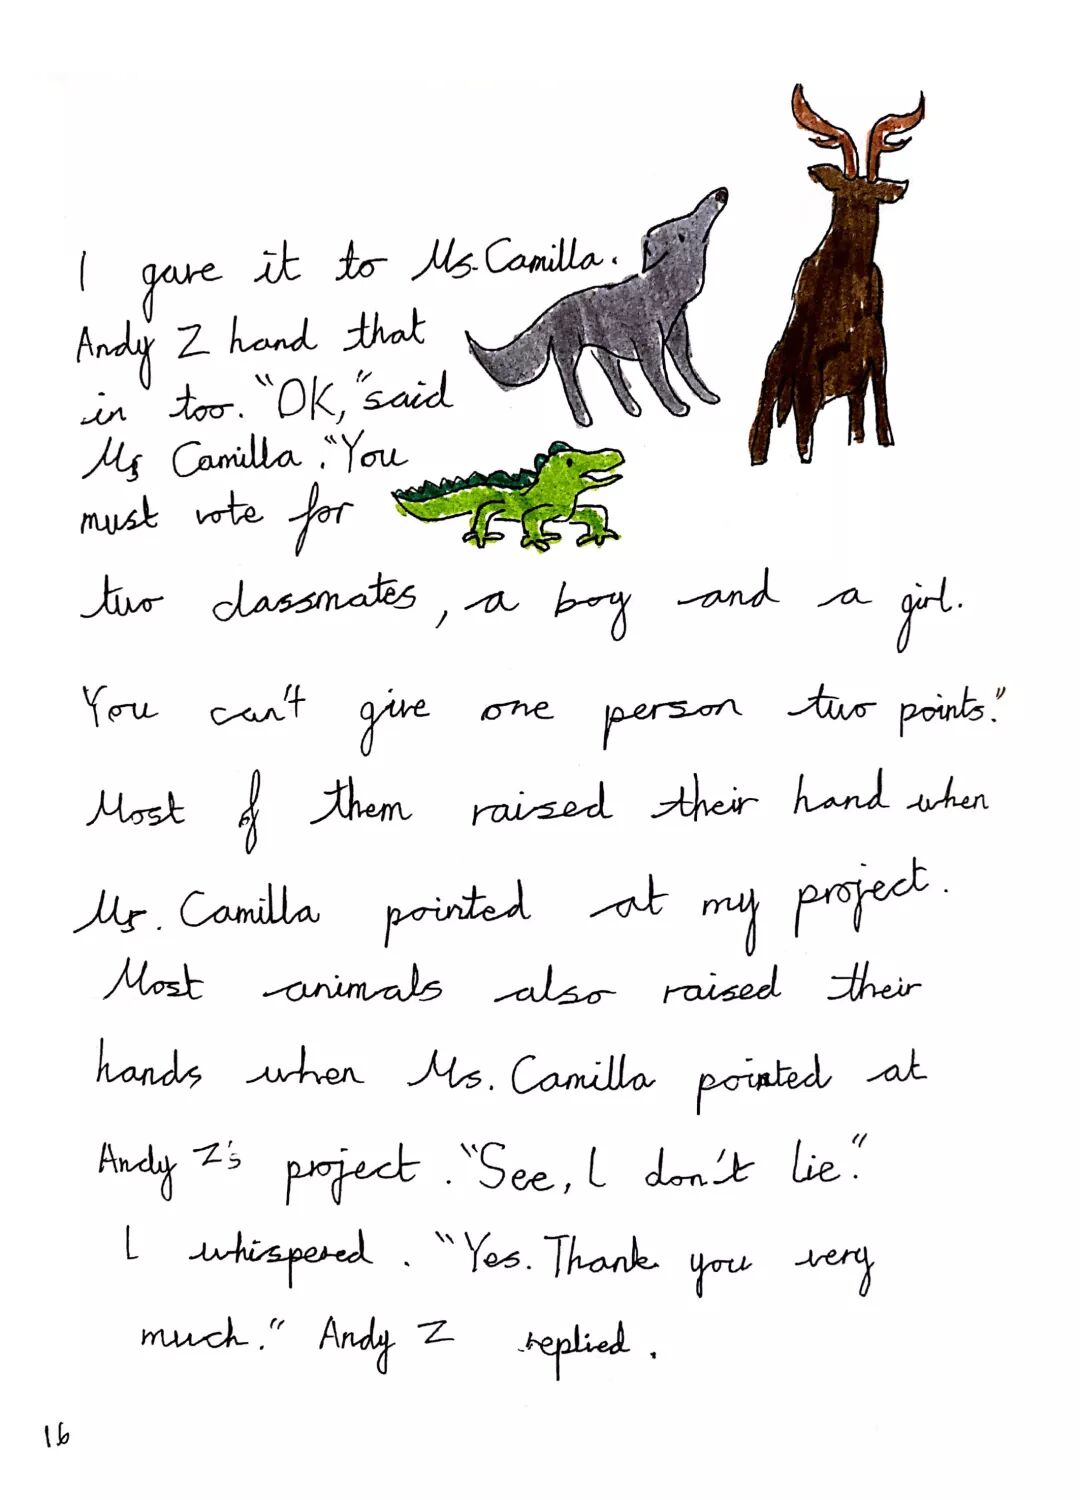 I gave it to Ms. Camilla.
Andy Z hand that
in too. "OK," said
Ms Camilla. "You
must vote for
two classmates, a boy and a girl.
You can't give one person two points."
Most of them raised their hand when
Ms. Camilla pointed at my project.
Most animals also raised their
hands when Ms. Camilla pointed at
Andy Z's project. "See, I don't lie."
I whispered. "Yes. Thank you very
much." Andy Z replied.
16